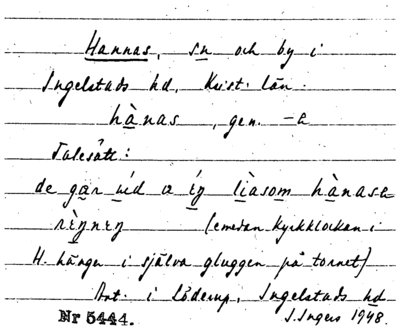 Hannas, sn och by i
Ingelstads hd, Krist. län.
hànas, gen. -a
Talesätt:
de gar uíd a éŋ lìasom hànasa
rèŋneŋ (emedan kyrkklockan i
H. hänger i själva gluggen på tornet)
Ant. i Löderup, Ingelstads hd
Nr 5444. S. Ingers 1948.